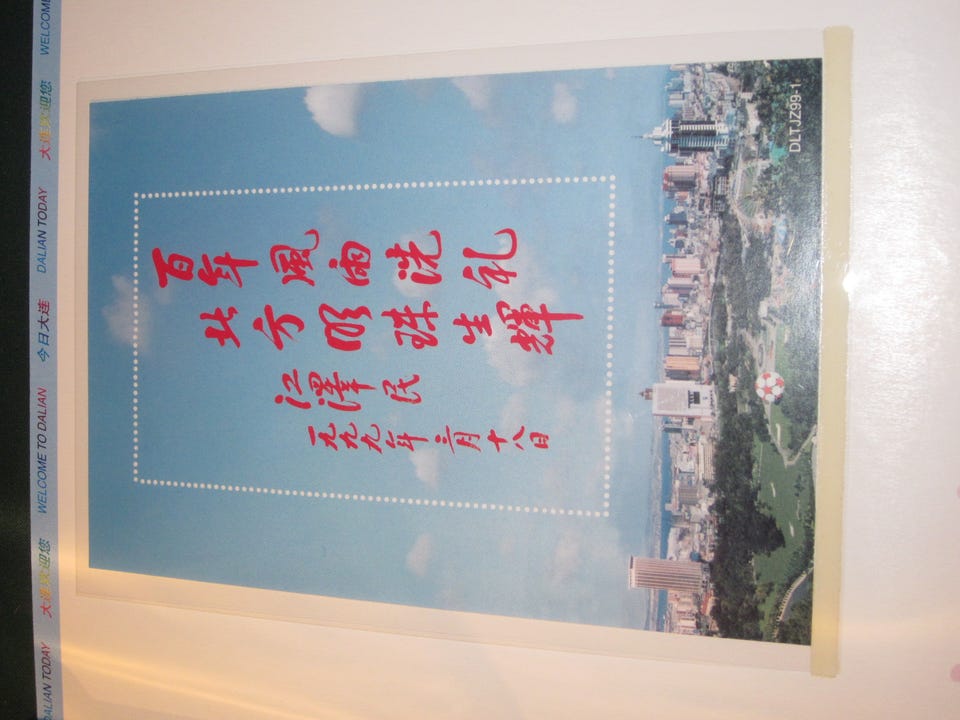 DALIAN TODAY 大连欢迎您 WELCOME TO DALIAN 今日大连 DALIAN TODAY 大连欢迎您 WELCOME
百年風雨洗礼
北方明珠生輝
江澤民
一九九九年三月十八日
DLTJZ99-1